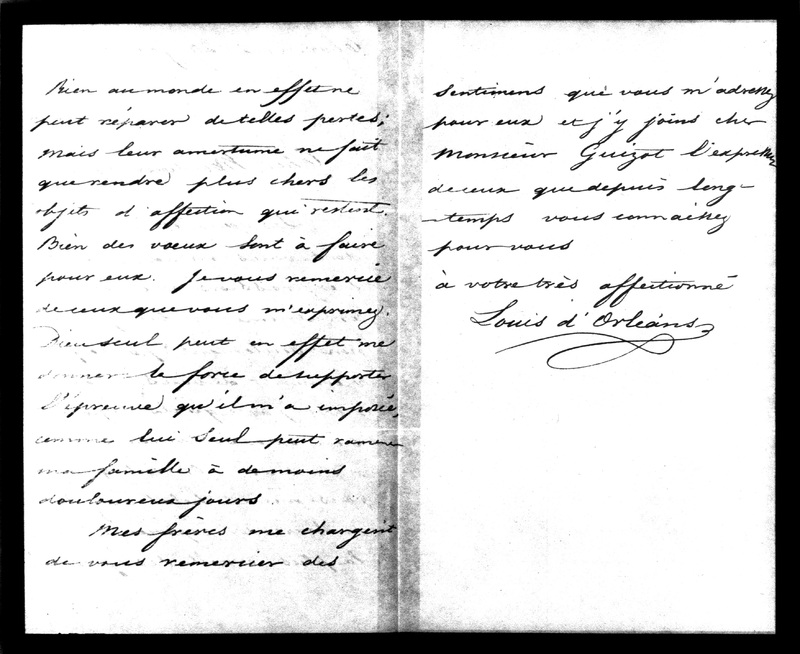 Rien au monde en effet ne
peut réparer de telles pertes;
mais leur amertume ne fait
que rendre plus chers les
objets d'affection qui restent.
Bien des vœux sont à faire
pour eux. Je vous remercie
de ceux que vous m'exprimez.
Dieu seul peut en effet me
donner la force de supporter
l'épreuve qu'il m'a imposée,
comme lui seul peut ramener
ma famille à de moins
douloureux jours
Mes frères me chargent
de vous remercier des
sentimens que vous m'adressez
pour eux et j'y joins cher
Monsieur Guizot l'expression
de ceux que depuis long-
-temps vous connaissez
pour vous
à votre très affectionné
Louis d'Orléans